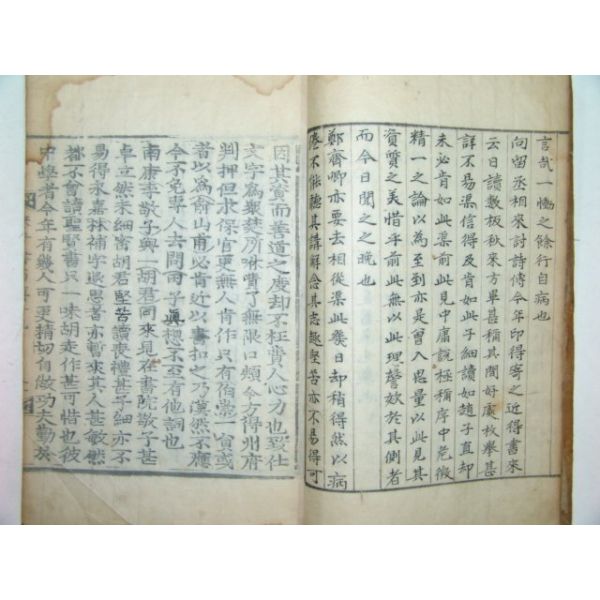 言哉一慟之餘行自病也
向留丞相來討詩傳今年印得寄之近得書來
云日讀數板秋來方畢甚稱其間好處枚舉甚
詳不易渠信得及肯如此子細讀如趙子直却
未必肯如此渠前此見中庸說極稱序中危微
精一之論以為至到亦是曾入思量以此見其
資質之美惜乎前此無以此理譬欬於其側者
而今日聞之之晚也
鄭齊卿亦要去相從渠此幾日却稍得然以病
倦不能聽其講解念其志趣堅苦亦不易得可
因其資而善道之度却不枉費人心力也致仕
文字為衆楚所咻費了無限口頰今方得州府
判押但求保官更無人肯作只有伯崇一員或
者以為俞山甫必肯近以書扣之乃漠然不應
今不免專人去問田子真想不至有他詞也
南康李敬子與一胡君同來見在書院敬子甚
卓立然未細密胡君堅苦讀喪禮甚子細亦不
易得永嘉林補字退思者亦嘗來其人甚敏然
都不會讀聖賢書只一味胡走作甚可惜也彼
中學者今年有幾人可更精切自做功夫勤於